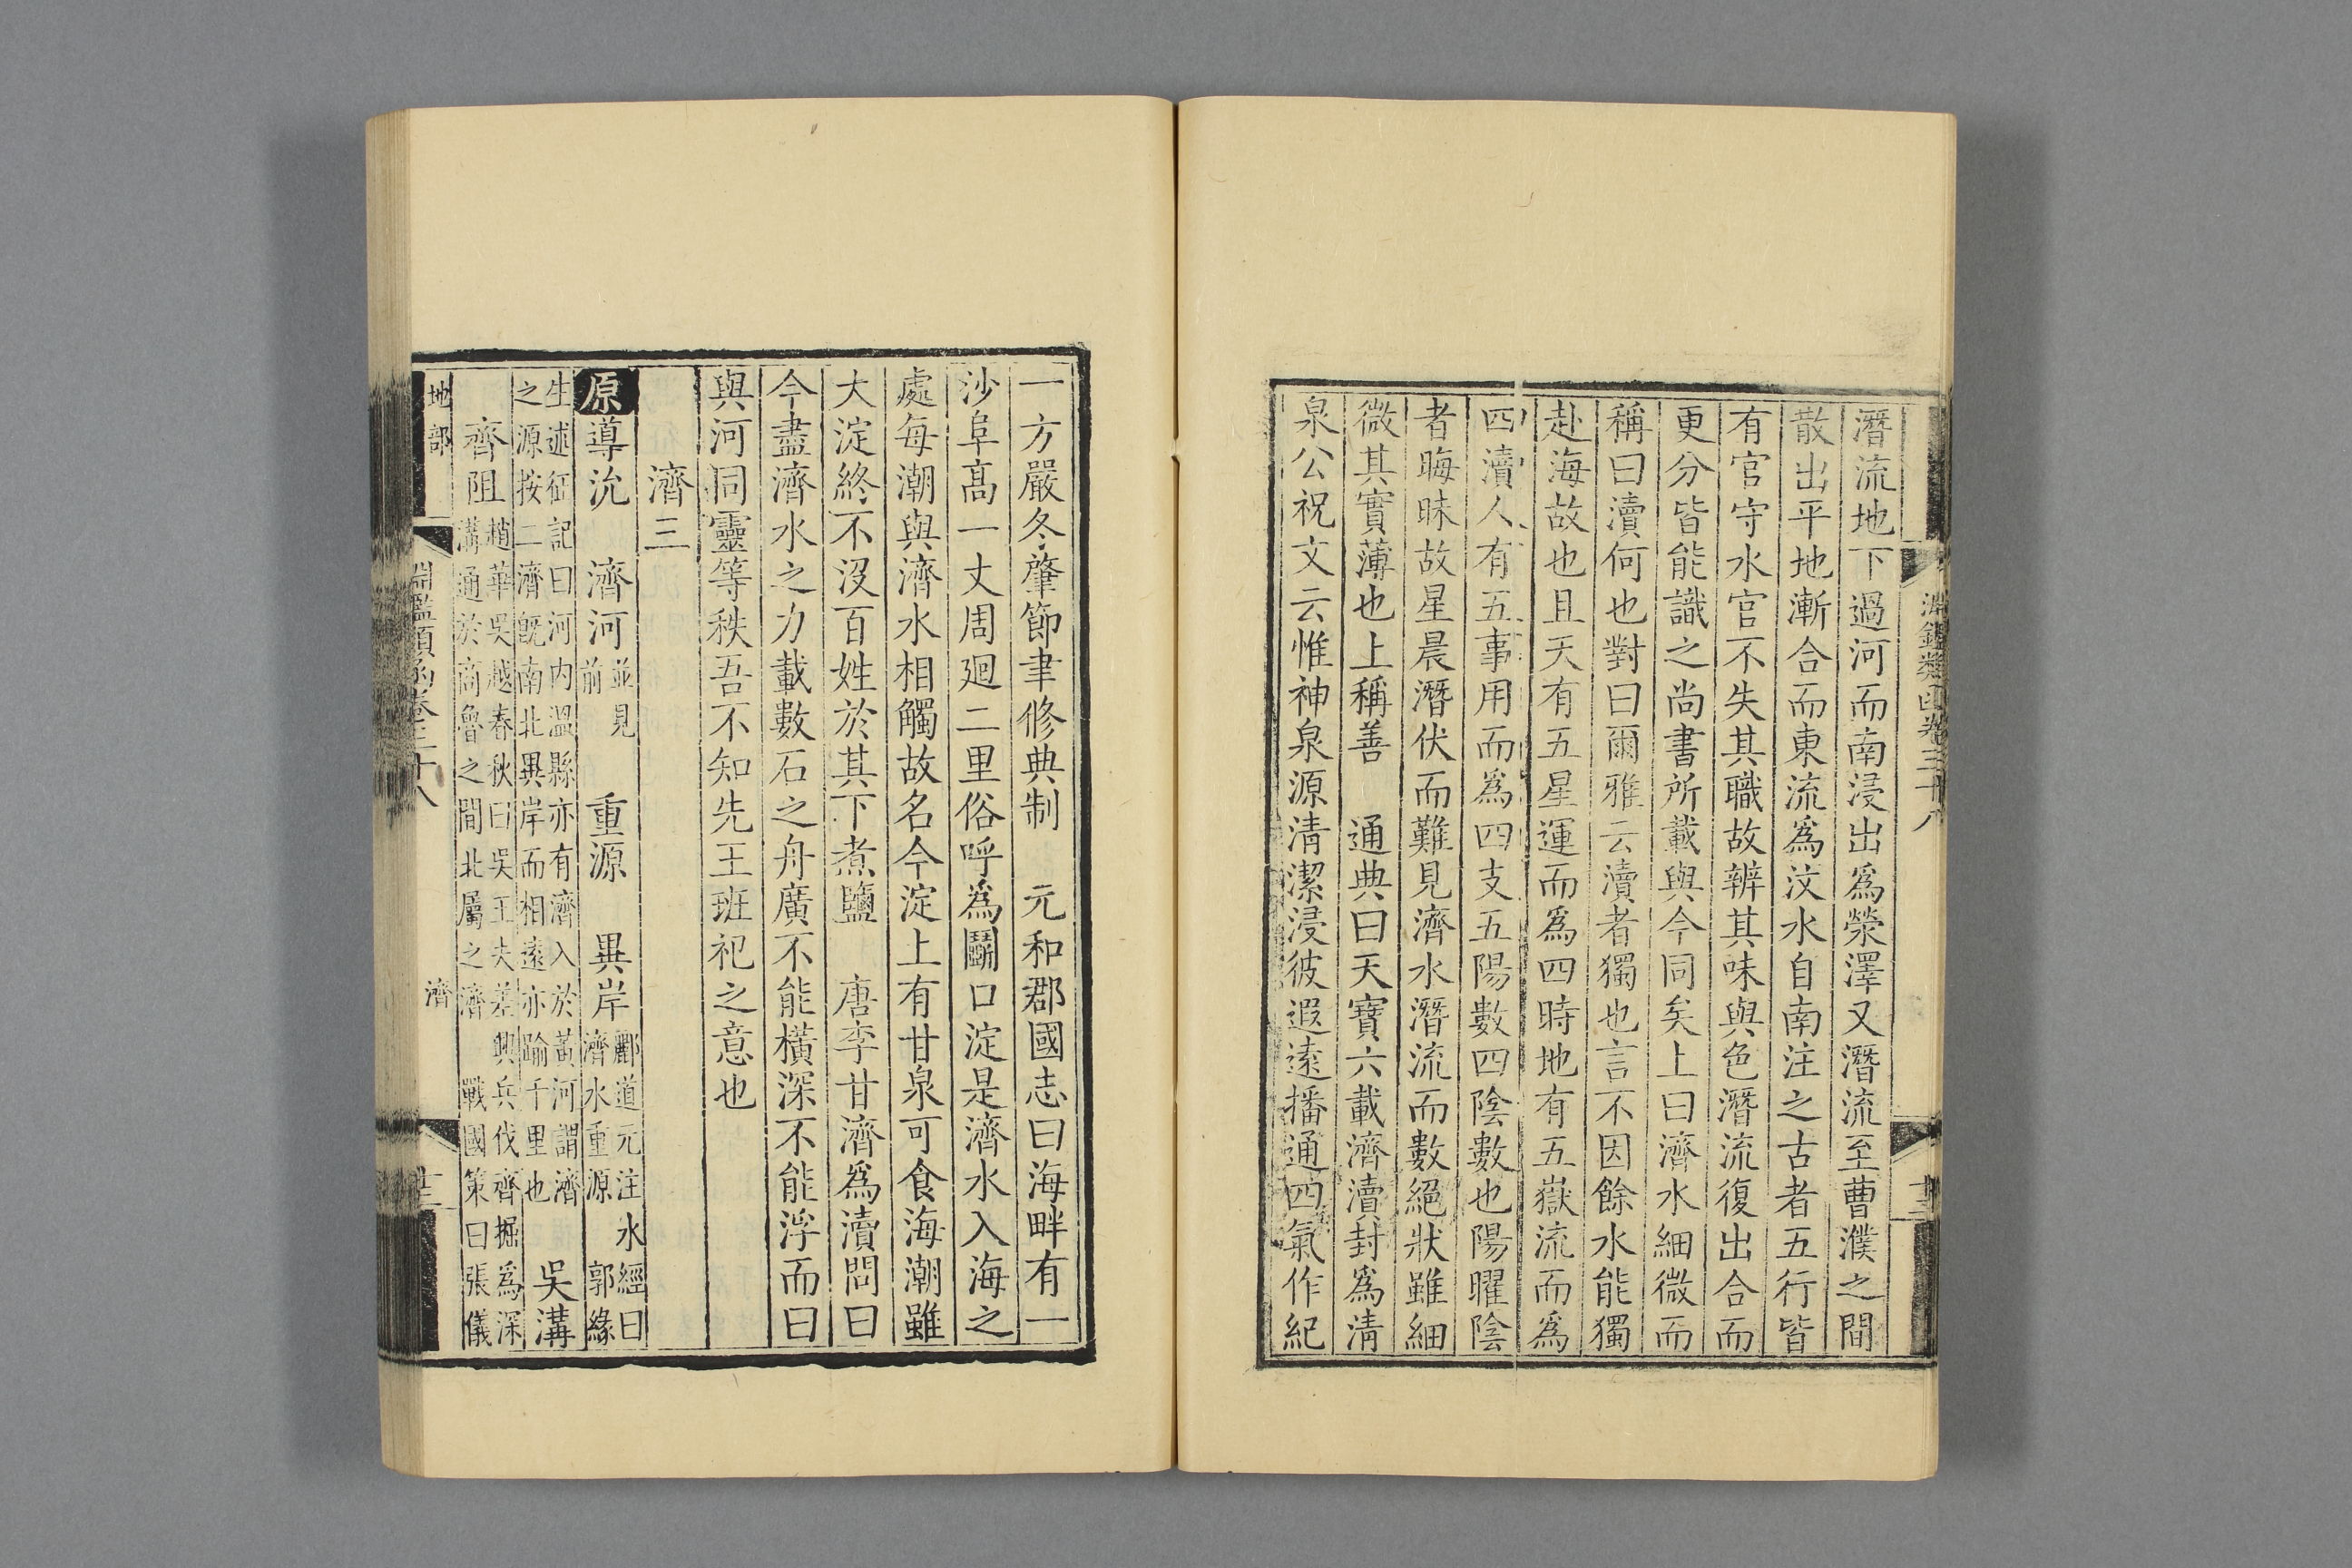 潛流地下過河而南浸出爲滎澤又潛流至曹濮之間
散出平地漸合而東流爲汶水自南注之古者五行皆
有官守水官不失其職故辨其味與色潛流復出合而
更分皆能識之尚書所載與今同矣上曰濟水細微而
稱曰瀆何也對曰爾雅云瀆者獨也言不因餘水能獨
赴海故也且天有五星運而爲四時地有五嶽流而爲
四瀆人有五事用而爲四支五陽數四陰數也陽曜陰
者晦昧故星晨潛伏而難見濟水潛流而數絕狀雖細
微其實薄也上稱善 通典曰天寶六載濟瀆封爲淸
泉公祝文云惟神泉源淸潔浸彼遐遠播通四氣作紀
一方嚴冬肇節聿修典制 元和郡國志曰海畔有一
沙阜高一丈周廻二里俗呼爲鬭口淀是濟水入海之
處每潮與濟水相觸故名今淀上有甘泉可食海潮雖
大淀終不沒百姓於其下煮鹽 唐李甘濟爲瀆問曰
今盡濟水之力載數石之舟廣不能橫深不能浮而曰
與河同靈等秩吾不知先王班祀之意也
濟三
原導沇 濟河並見前 重源 異岸酈道元注水經曰濟水重源 郭緣
生述征記曰河內溫縣亦有濟入於黃河謂濟之源按二濟旣南北異岸而相遠亦踰千里也 吳溝
齊阻趙華吳越春秋曰吳王夫差興兵伐齊掘爲深溝通於商魯之間北屬之濟 戰國策曰張儀
地部 淵鑑類函卷三十八 濟